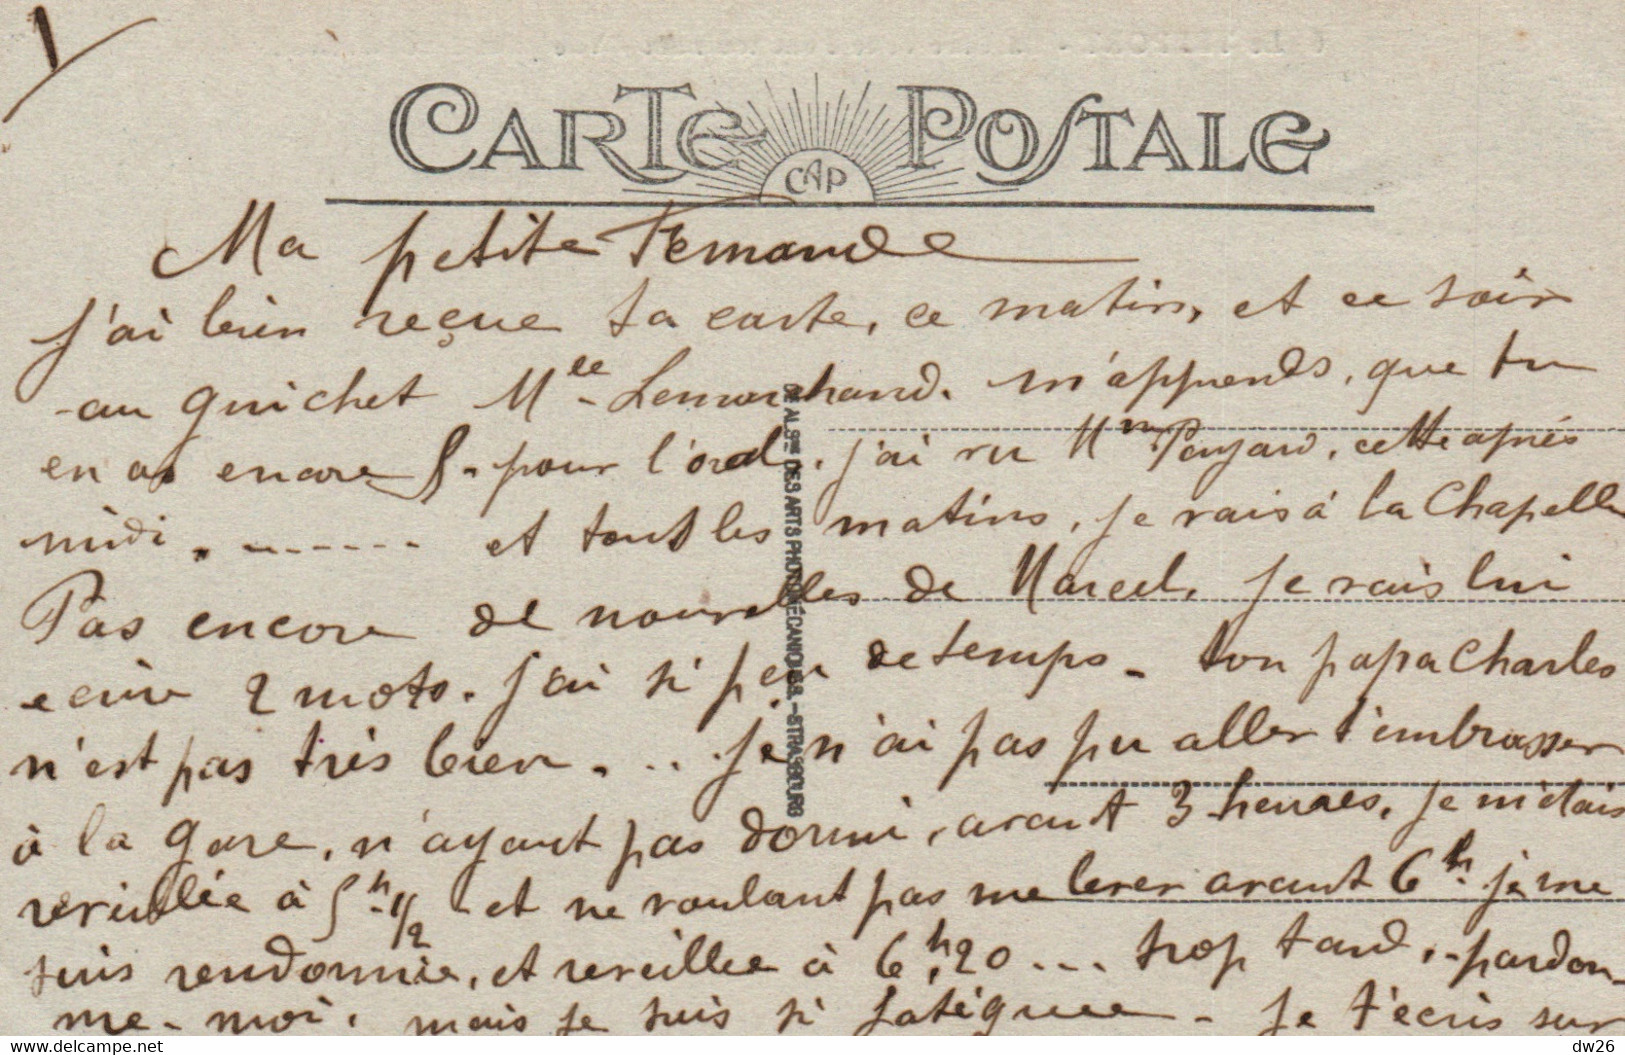 1
CARTE POSTALE
CAP
Ma petite Fernande
J'ai bien reçue ta carte, ce matin, et ce soir
au guichet Mlle Lemarchand. m'apprends, que tu
en as encore 5. pour l'oral, j'ai vu Mme Payard, cette après
midi. ------- et tous les matins, je vais à la Chapelle
Pas encore de nouvelles de Marcel, je vais lui
ecrire 2 mots. j'ai si peu de temps - ton papa Charles
n'est pas très bien. .. je n'ai pas pu aller t'embrasser
à la gare, n'ayant pas dormi, avant 3 heures, je m'étais
reveillée à 5h 1/2 et ne voulant pas me lever avant 6h. je me
suis rendormie, et reveillée à 6h,20 ... trop tard, pardon-
me-moi. mais je suis si fatiguée - Je t'écris sur
Cie ALSne DES ARTS PHOTOMÉCANIQUES. - STRASBOURG
delcampe.net
dw26